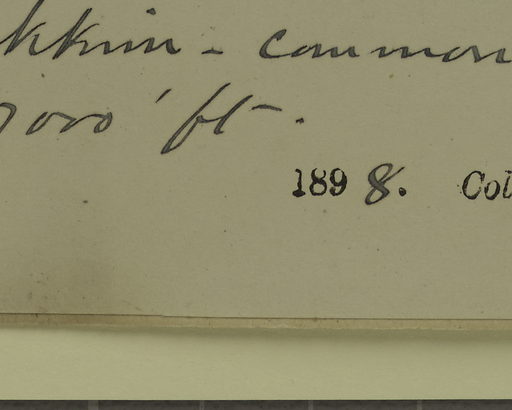 kkim - common
7000' ft.
1898. Col